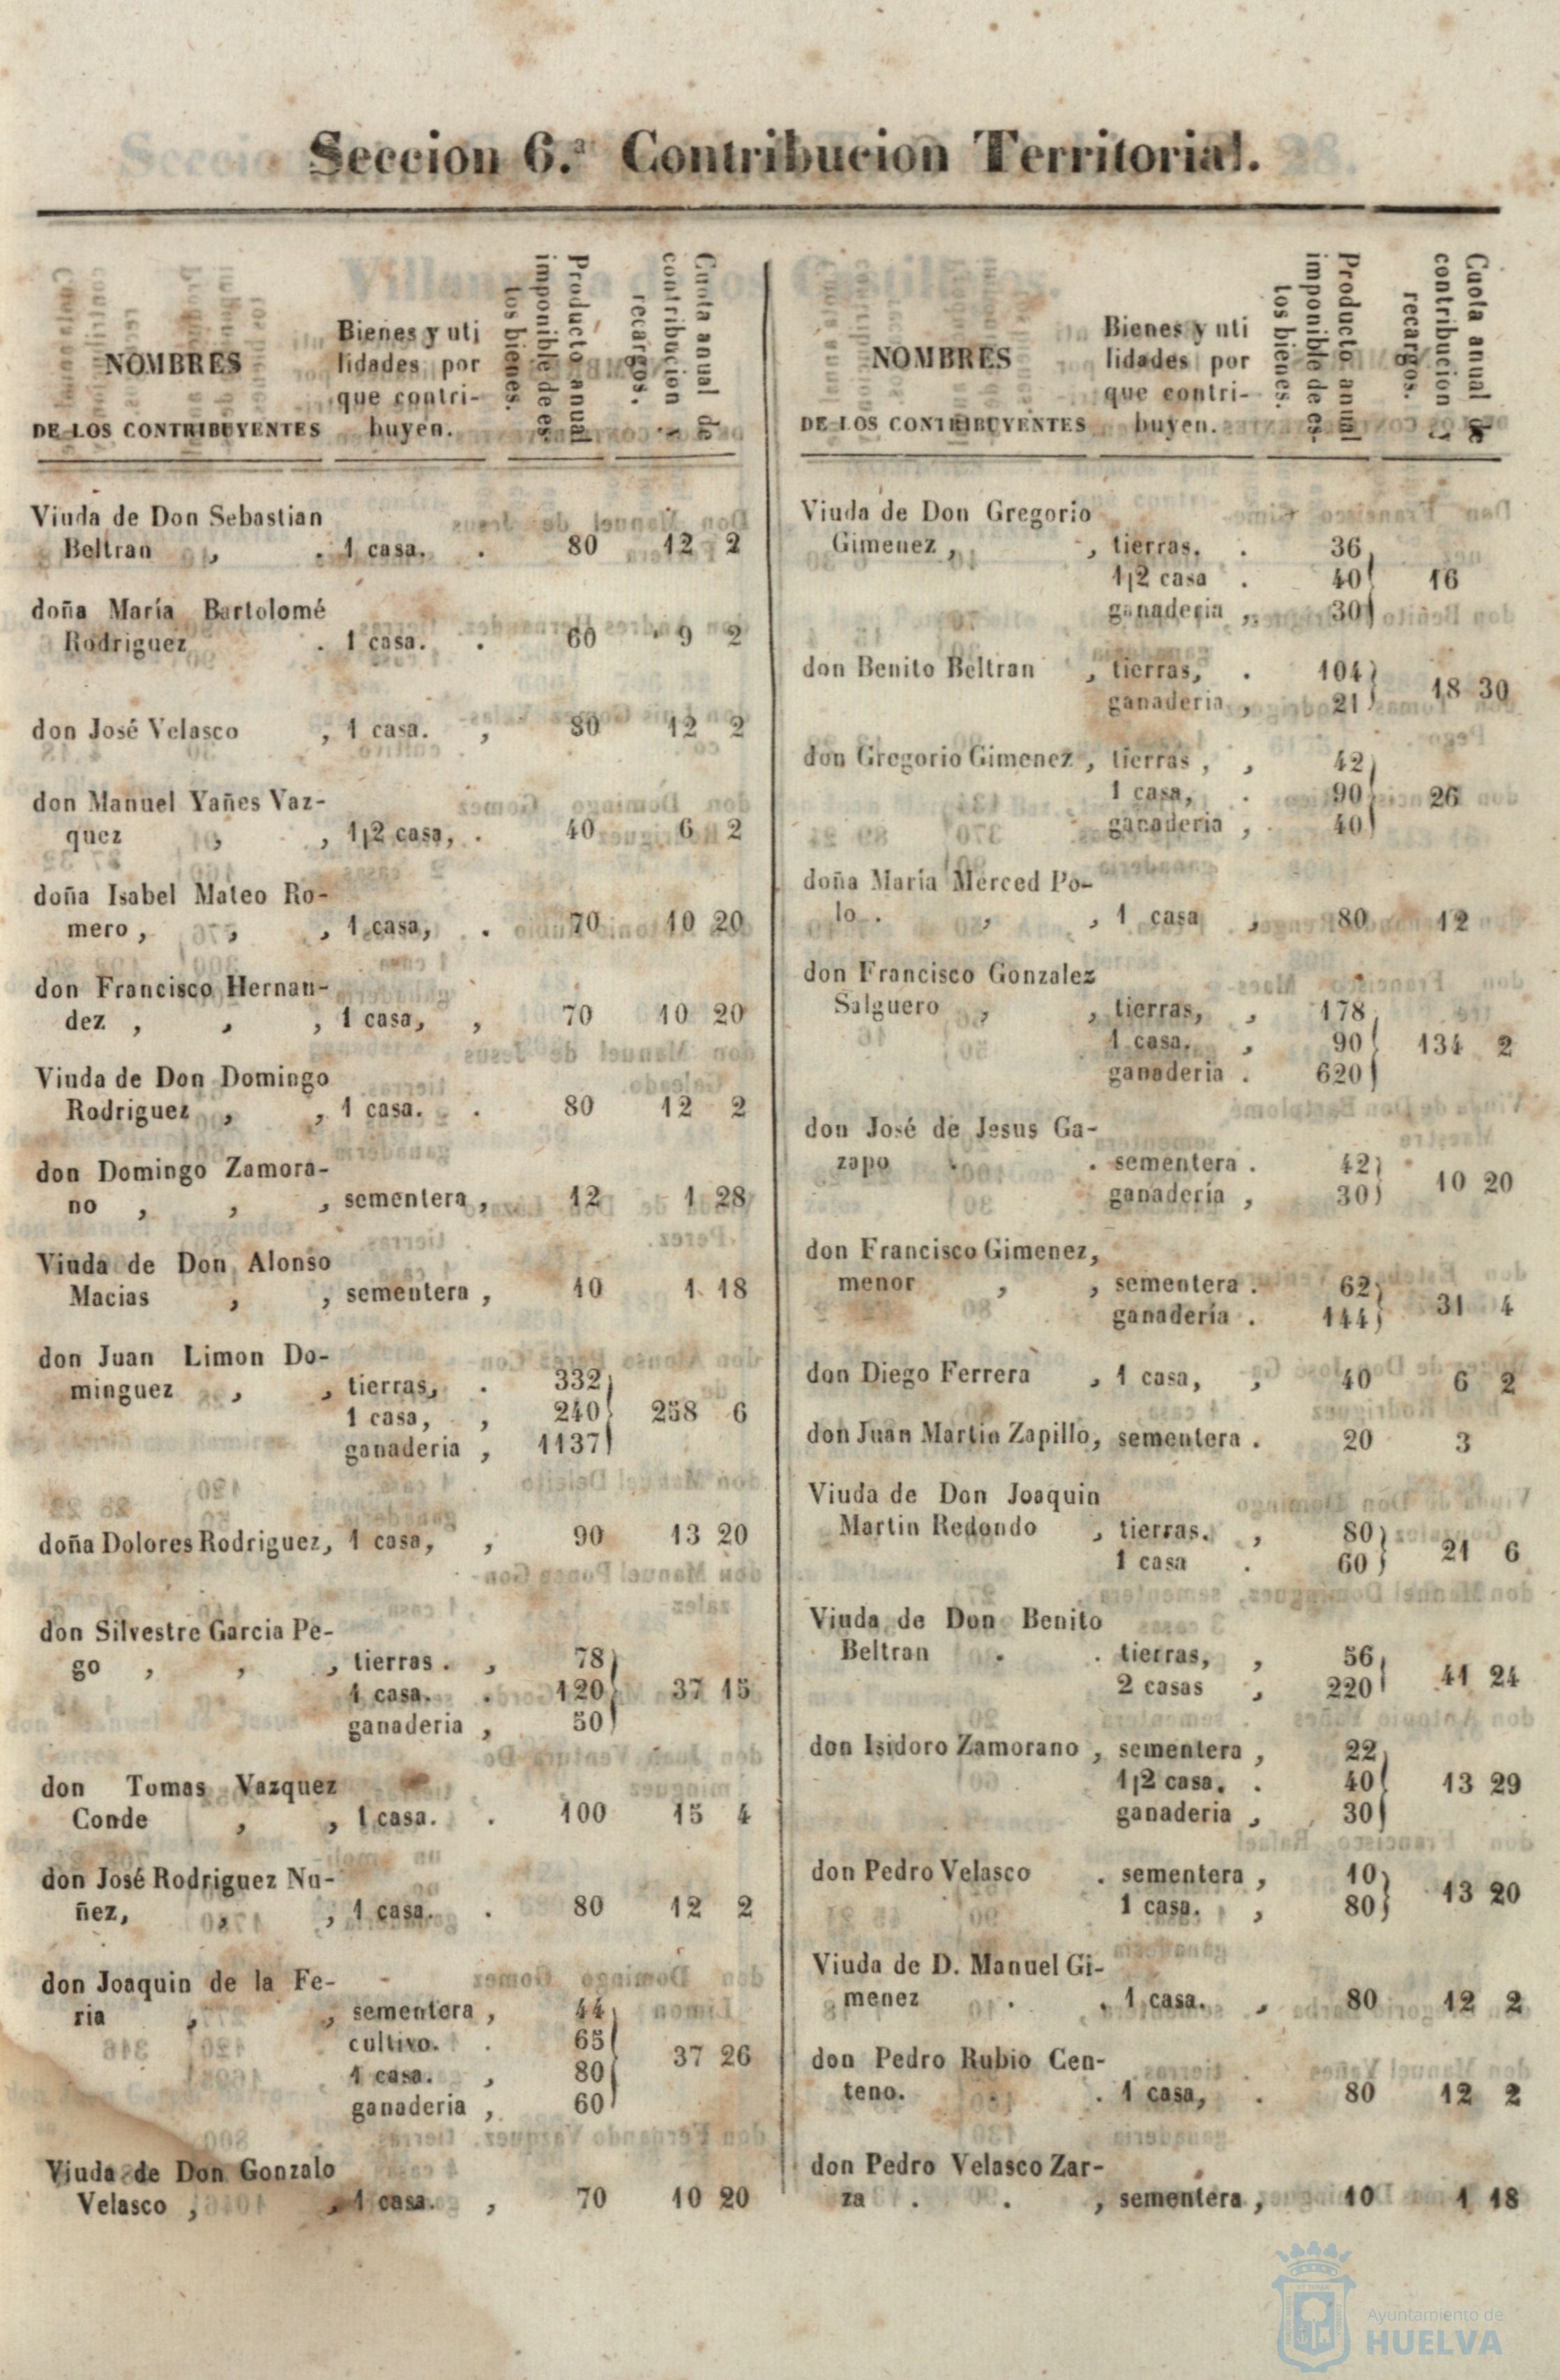 Seccion 6.ª Contribucion Territorial.
NOMBRES
DE LOS CONTRIBUYENTES
Bienes y uti
lidades por
que contri-
buyen.
Producto anual
imponible de es
tos bienes.
Cuota anual de
contribucion y
recargos.
Viuda de Don Sebastian
Beltran , . 1 casa. . 80 12 2
doña María Bartolomé
Rodriguez . 1 casa. . 60 9 2
don José Velasco , 1 casa. , 80 12 2
don Manuel Yañes Vaz-
quez , , 1|2 casa, . 40 6 2
doña Isabel Mateo Ro-
mero , , , 1 casa, . 70 10 20
don Francisco Hernan-
dez , , , 1 casa, , 70 10 20
Viuda de Don Domingo
Rodriguez , , 1 casa. . 80 12 2
don Domingo Zamora-
no , , , sementera , 12 1 28
Viuda de Don Alonso
Macias , , sementera , 10 1 18
don Juan Limon Do-
minguez , , tierras, . 332
1 casa, , 240 258 6
ganaderia , 1137
doña Dolores Rodriguez, 1 casa, , 90 13 20
don Silvestre Garcia Pe-
go , , , tierras . , 78
1 casa. . 120 37 15
ganaderia , 50
don Tomas Vazquez
Conde , , 1 casa. . 100 15 4
don José Rodriguez Nu-
ñez, , 1 casa. . 80 12 2
don Joaquin de la Fe-
ria , , sementera , 44
cultivo. . 65
1 casa. , 80 37 26
ganaderia , 60
Viuda de Don Gonzalo
Velasco , , 1 casa. , 70 10 20
NOMBRES
DE LOS CONTRIBUYENTES
Bienes y uti
lidades por
que contri-
buyen.
Producto anual
imponible de es-
tos bienes.
Cuota anual de
contribucion y
recargos.
Viuda de Don Gregorio
Gimenez , , tierras. . 36
1|2 casa . 40 16
ganaderia , 30
don Benito Beltran , tierras, . 104
ganaderia , 21 18 30
don Gregorio Gimenez , tierras , , 42
1 casa, . 90 26
ganaderia , 40
doña María Merced Po-
lo . , , 1 casa , 80 12
don Francisco Gonzalez
Salguero , , tierras, , 178
1 casa. , 90 134 2
ganaderia . 620
don José de Jesus Ga-
zapo . . sementera . 42
ganaderia , 30 10 20
don Francisco Gimenez,
menor , , sementera . 62
ganadería . 144 31 4
don Diego Ferrera , 1 casa, , 40 6 2
don Juan Martin Zapillo, sementera . 20 3
Viuda de Don Joaquin
Martin Redondo , tierras. , 80
1 casa . 60 21 6
Viuda de Don Benito
Beltran . . tierras, , 56
2 casas , 220 41 24
don Isidoro Zamorano , sementera , 22
1|2 casa. . 40 13 29
ganaderia , 30
don Pedro Velasco . sementera , 10
1 casa. , 80 13 20
Viuda de D. Manuel Gi-
menez . . 1 casa. , 80 12 2
don Pedro Rubio Cen-
teno. . . 1 casa, . 80 12 2
don Pedro Velasco Zar-
za . . , sementera , 10 1 18
Ayuntamiento de
HUELVA